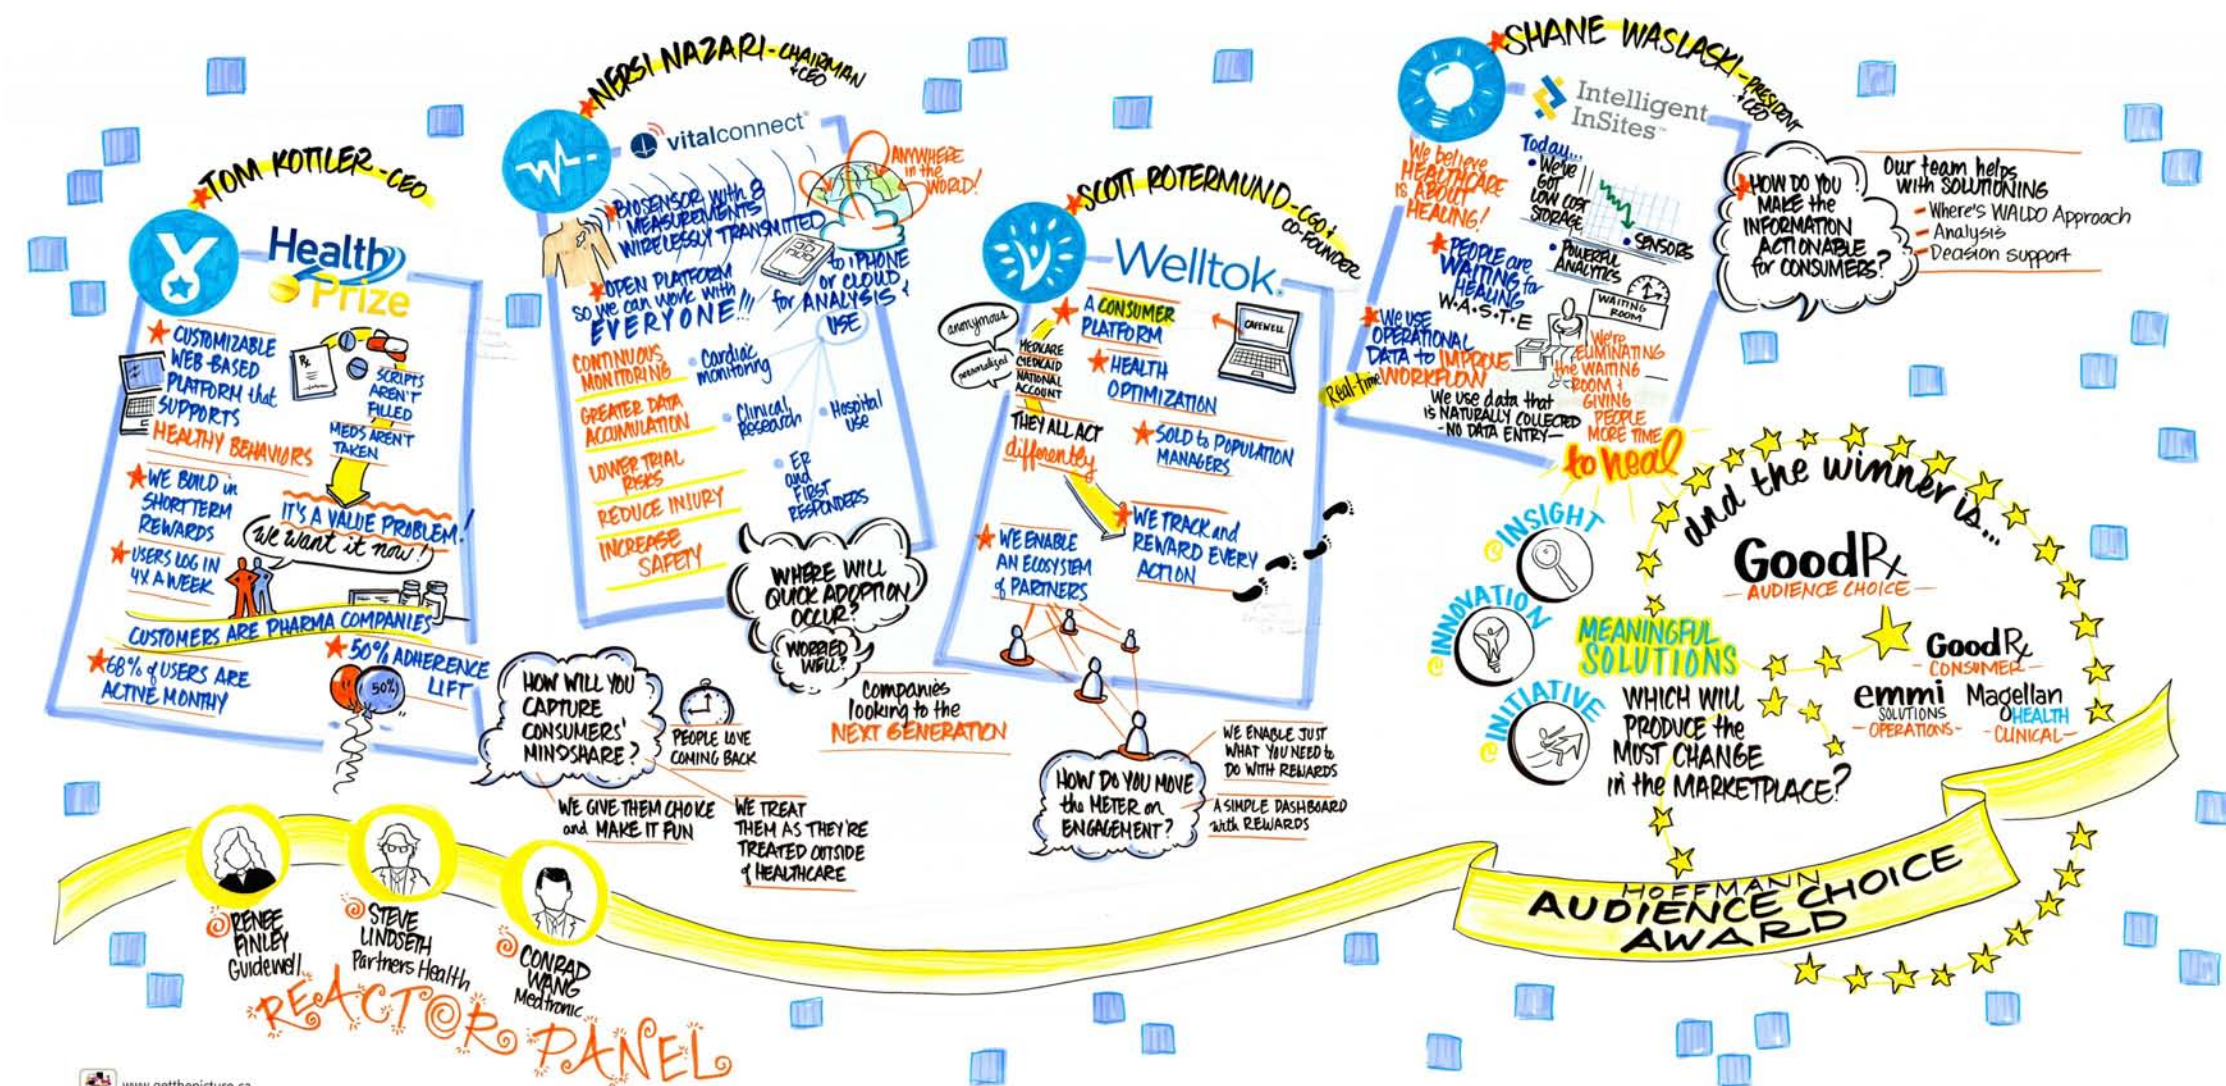 TOM KOTTLER - CEO
Health
Prize
CUSTOMIZABLE
WEB-BASED
PLATFORM that
SUPPORTS
HEALTHY BEHAVIORS
Rx
SCRIPTS
AREN'T
FILLED
MEDS AREN'T
TAKEN
WE BUILD in
SHORT TERM
REWARDS
IT'S A VALUE PROBLEM!
we want it now!
USERS LOG IN
4X A WEEK
CUSTOMERS ARE PHARMA COMPANIES
68% of USERS ARE
ACTIVE MONTHY
50% ADHERENCE
LIFT
50%
NERSI NAZARI - CHAIRMAN
+ CEO
vitalconnect
BIOSENSOR WITH 8
MEASUREMENTS
WIRELESSLY TRANSMITTED
ANYWHERE
in the
WORLD!
to iPHONE
or CLOUD
for ANALYSIS &
USE
OPEN PLATFORM
SO WE CAN WORK WITH
EVERYONE!!!
CONTINUOUS
MONITORING
GREATER DATA
ACCUMULATION
LOWER TRIAL
RISKS
REDUCE INJURY
INCREASE
SAFETY
Cardiac
monitoring
Clinical
Research
Hospital
use
ER
and
FIRST
RESPONDERS
WHERE WILL
QUICK ADOPTION
OCCUR?
WORRIED
WELL?
Companies
looking to the
NEXT GENERATION
HOW WILL YOU
CAPTURE
CONSUMERS'
MINDSHARE?
PEOPLE LOVE
COMING BACK
WE GIVE THEM CHOICE
and MAKE IT FUN
WE TREAT
THEM AS THEY'RE
TREATED OUTSIDE
of HEALTHCARE
SCOTT ROTERMUND - CGO +
CO-FOUNDER
Welltok.
A CONSUMER
PLATFORM
CAFEWELL
anonymous
personalized
MEDICARE
MEDICAID
NATIONAL
ACCOUNT
HEALTH
OPTIMIZATION
THEY ALL ACT
differently
SOLD to POPULATION
MANAGERS
WE TRACK and
REWARD EVERY
ACTION
WE ENABLE
AN ECOSYSTEM
of PARTNERS
HOW DO YOU MOVE
the METER on
ENGAGEMENT?
WE ENABLE JUST
WHAT YOU NEED to
DO WITH REWARDS
A SIMPLE DASHBOARD
with REWARDS
SHANE WASLASKI - PRESIDENT
+ CEO
Intelligent
InSites™
We believe
HEALTHCARE
IS ABOUT
HEALING!
Today...
We've
GOT
LOW COST
STORAGE
SENSORS
POWERFUL
ANALYTICS
PEOPLE are
WAITING for
HEALING
W.A.S.T.E
WAITING
ROOM
WE USE
OPERATIONAL
DATA to IMPROVE
WORKFLOW
Real-time
We use data that
is NATURALLY COLLECTED
- NO DATA ENTRY -
We're
ELIMINATING
the WAITING
ROOM &
GIVING
PEOPLE
MORE TIME
to heal
HOW DO YOU
MAKE the
INFORMATION
ACTIONABLE
for CONSUMERS?
Our team helps
with SOLUTIONING
- Where's WALDO Approach
- Analysis
- Decision support
INSIGHT
INNOVATION
INITIATIVE
MEANINGFUL
SOLUTIONS
WHICH WILL
PRODUCE the
MOST CHANGE
in the MARKETPLACE?
and the winner is...
GoodRx
- AUDIENCE CHOICE -
GoodRx
- CONSUMER -
emmi
SOLUTIONS
- OPERATIONS -
Magellan
HEALTH
- CLINICAL -
HOFFMANN
AUDIENCE CHOICE
AWARD
RENEE
FINLEY
Guidewell
STEVE
LINDSETH
Partners Health
CONRAD
WANG
Medtronic
REACTOR PANEL
www.getthepicture.ca